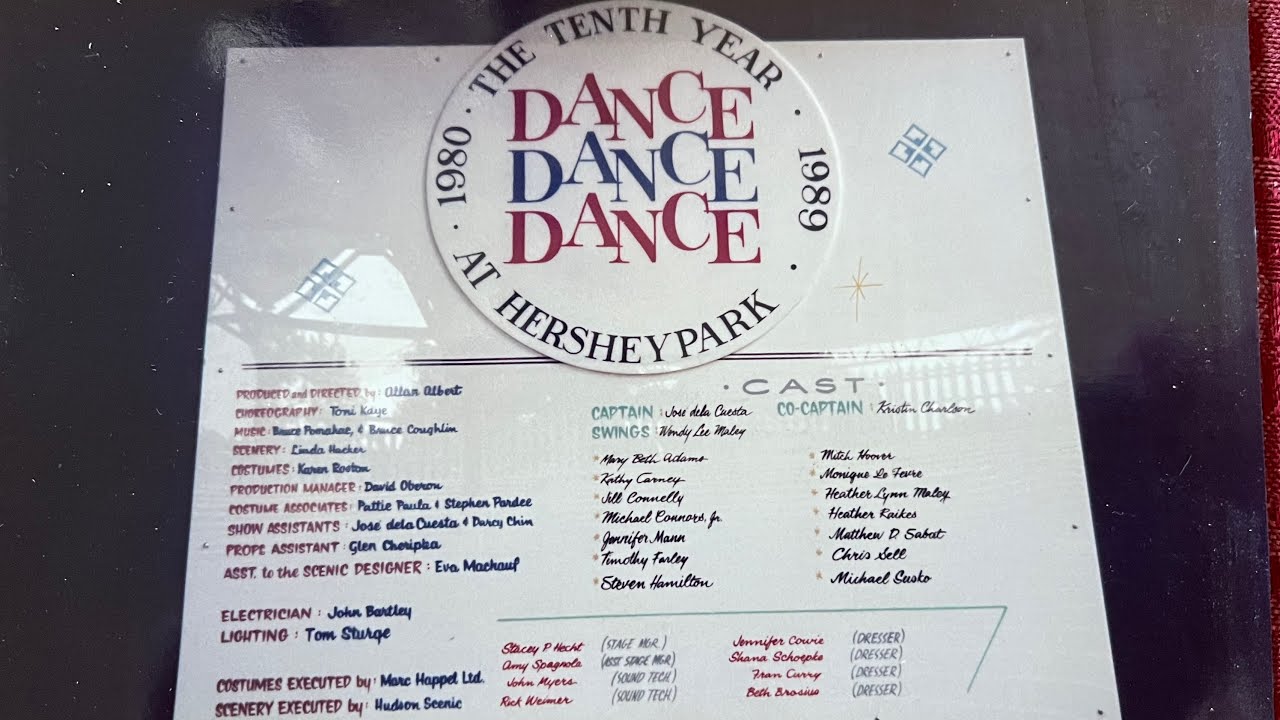 THE TENTH YEAR
1980 · 1989
DANCE
DANCE
DANCE
AT HERSHEYPARK
PRODUCED and DIRECTED by: Allan Albert
CHOREOGRAPHY: Toni Kaye
MUSIC: Bruce Pomahac, & Bruce Coughlin
SCENERY: Linda Hacker
COSTUMES: Karen Roston
PRODUCTION MANAGER: David Oberon
COSTUME ASSOCIATES: Pattie Paula & Stephen Pardee
SHOW ASSISTANTS: José dela Cuesta & Darcy Chin
PROPS ASSISTANT: Glen Cheripka
ASST. to the SCENIC DESIGNER: Eva Machauf
ELECTRICIAN: John Bartley
LIGHTING: Tom Sturge
COSTUMES EXECUTED by: Marc Happel Ltd.
SCENERY EXECUTED by: Hudson Scenic
· CAST ·
CAPTAIN: José dela Cuesta
CO-CAPTAIN: Kristin Charlson
SWINGS: Wendy Lee Maley
Mary Beth Adams
Kathy Carney
Jill Connelly
Michael Connors, Jr.
Jennifer Mann
Timothy Farley
Steven Hamilton
Mitch Hoover
Monique Le Fevre
Heather Lynn Maley
Heather Raikes
Matthew D. Sabat
Chris Sell
Michael Susko
Stacey P Hecht (STAGE MGR.)
Amy Spagnola (ASST STAGE MGR)
John Myers (SOUND TECH.)
Rick Weimer (SOUND TECH.)
Jennifer Cowie (DRESSER)
Shana Schoepke (DRESSER)
Fran Curry (DRESSER)
Beth Brosius (DRESSER)